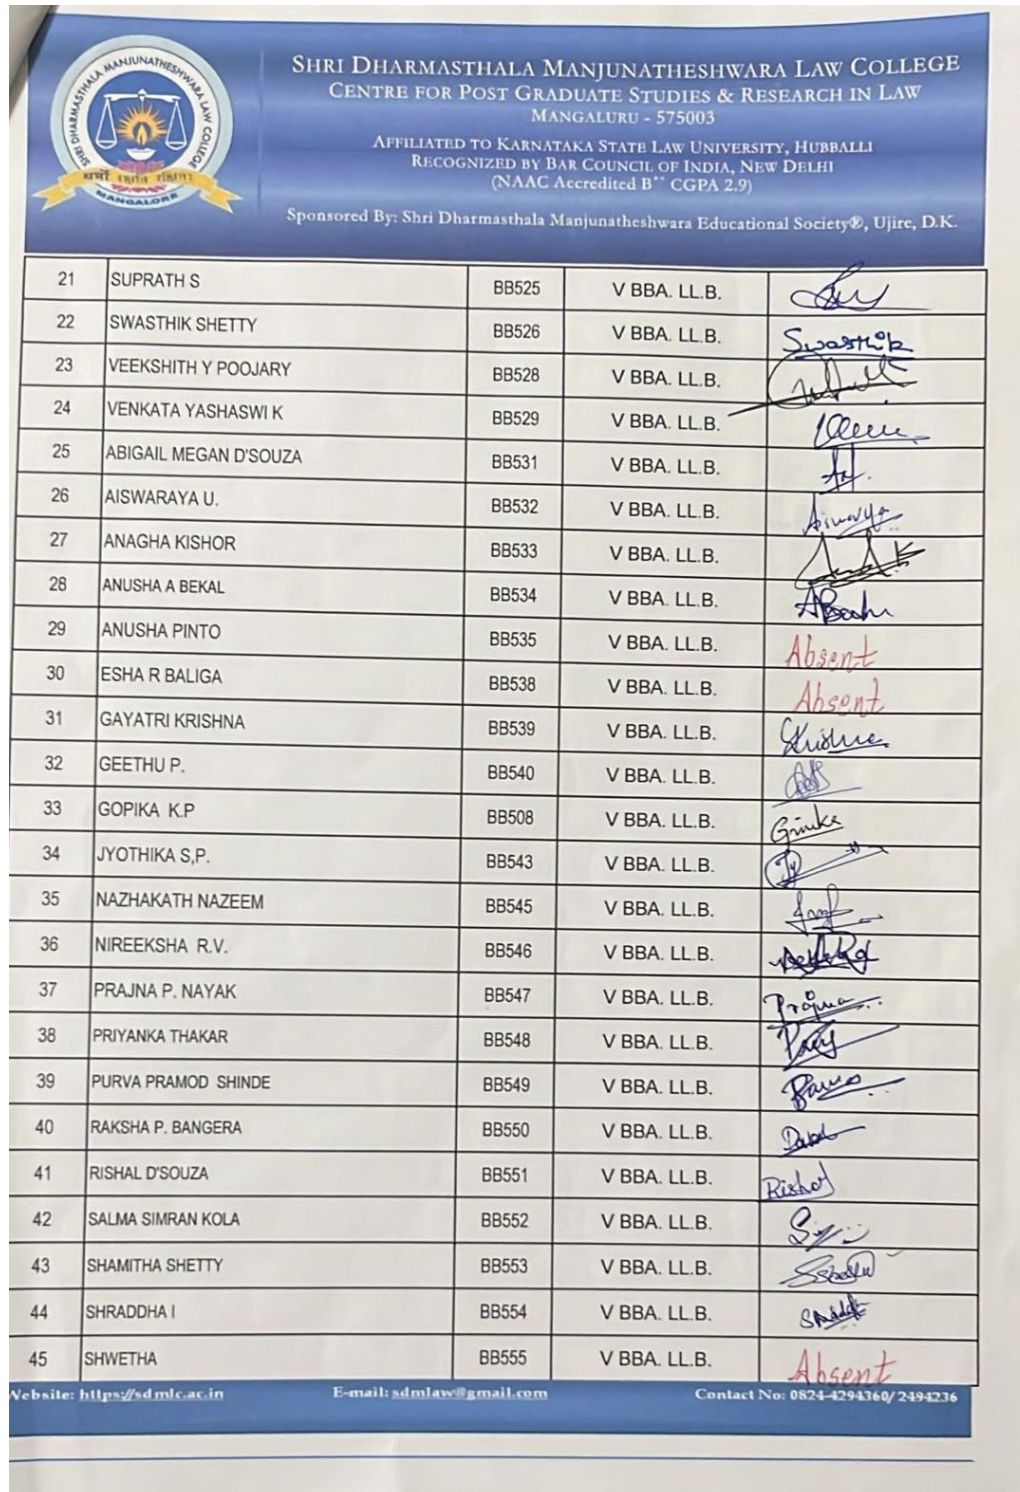 SHRI DHARMASTHALA MANJUNATHESHWARA LAW COLLEGE
MANGALORE
धर्मो रक्षति रक्षितः
SHRI DHARMASTHALA MANJUNATHESHWARA LAW COLLEGE
CENTRE FOR POST GRADUATE STUDIES & RESEARCH IN LAW
MANGALURU - 575003
AFFILIATED TO KARNATAKA STATE LAW UNIVERSITY, HUBBALLI
RECOGNIZED BY BAR COUNCIL OF INDIA, NEW DELHI
(NAAC Accredited B++ CGPA 2.9)
Sponsored By: Shri Dharmasthala Manjunatheshwara Educational Society®, Ujire, D.K.
21 SUPRATH S BB525 V BBA. LL.B.
22 SWASTHIK SHETTY BB526 V BBA. LL.B. Swasthik
23 VEEKSHITH Y POOJARY BB528 V BBA. LL.B.
24 VENKATA YASHASWI K BB529 V BBA. LL.B.
25 ABIGAIL MEGAN D'SOUZA BB531 V BBA. LL.B.
26 AISWARAYA U. BB532 V BBA. LL.B.
27 ANAGHA KISHOR BB533 V BBA. LL.B.
28 ANUSHA A BEKAL BB534 V BBA. LL.B.
29 ANUSHA PINTO BB535 V BBA. LL.B. Absent
30 ESHA R BALIGA BB538 V BBA. LL.B. Absent
31 GAYATRI KRISHNA BB539 V BBA. LL.B.
32 GEETHU P. BB540 V BBA. LL.B.
33 GOPIKA K.P BB508 V BBA. LL.B.
34 JYOTHIKA S,P. BB543 V BBA. LL.B.
35 NAZHAKATH NAZEEM BB545 V BBA. LL.B.
36 NIREEKSHA R.V. BB546 V BBA. LL.B.
37 PRAJNA P. NAYAK BB547 V BBA. LL.B. Prajna
38 PRIYANKA THAKAR BB548 V BBA. LL.B.
39 PURVA PRAMOD SHINDE BB549 V BBA. LL.B.
40 RAKSHA P. BANGERA BB550 V BBA. LL.B.
41 RISHAL D'SOUZA BB551 V BBA. LL.B. Rishal
42 SALMA SIMRAN KOLA BB552 V BBA. LL.B.
43 SHAMITHA SHETTY BB553 V BBA. LL.B.
44 SHRADDHA I BB554 V BBA. LL.B.
45 SHWETHA BB555 V BBA. LL.B. Absent
Website: https://sdmlc.ac.in E-mail: sdmlaw@gmail.com Contact No: 0824-4294360/ 2494236